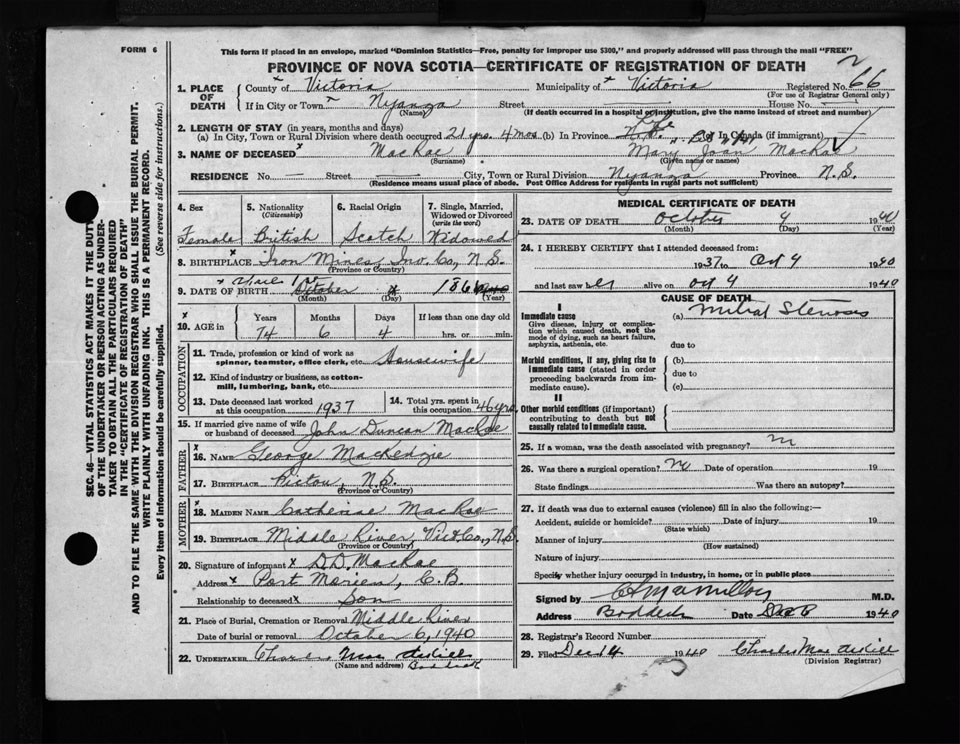 FORM 6
This form if placed in an envelope, marked "Dominion Statistics—Free, penalty for improper use $300," and properly addressed will pass through the mail "FREE"
PROVINCE OF NOVA SCOTIA—CERTIFICATE OF REGISTRATION OF DEATH
1. PLACE OF DEATH County of Victoria Municipality of Victoria Registered No. 66
(For use of Registrar General only)
If in City or Town Nyanza Street House No.
(Name) (If death occurred in a hospital or institution, give the name instead of street and number)
2. LENGTH OF STAY (in years, months and days)
(a) In City, Town or Rural Division where death occurred 21 yrs. 4 mos (b) In Province Life (c) In Canada (if immigrant)
3. NAME OF DECEASED MacRae Mary Joan MacRae
(Surname) (Given name or names)
RESIDENCE No. — Street — City, Town or Rural Division Nyanza Province N.S.
(Residence means usual place of abode. Post Office Address for residents in rural parts not sufficient)
4. Sex 5. Nationality (Citizenship) 6. Racial Origin 7. Single, Married, Widowed or Divorced (write the word)
Female British Scotch Widowed
8. BIRTHPLACE Iron Mines, Inv. Co., N.S.
(Province or Country)
9. DATE OF BIRTH April October 186
(Month) (Day) (Year)
10. AGE in Years Months Days If less than one day old
74 6 4 hrs. or min.
OCCUPATION
11. Trade, profession or kind of work as spinner, teamster, office clerk, etc. Housewife
12. Kind of industry or business, as cotton-mill, lumbering, bank, etc.
13. Date deceased last worked at this occupation 1937 14. Total yrs. spent in this occupation 46 yrs.
15. If married give name of wife or husband of deceased John Duncan MacRae
FATHER
16. NAME George MacKenzie
17. BIRTHPLACE Pictou, N.S.
(Province or Country)
MOTHER
18. MAIDEN NAME Catherine MacRae
19. BIRTHPLACE Middle River, Vict Co., N.S.
(Province or Country)
20. Signature of informant D.D. MacRae
Address Port Morien, C.B.
Relationship to deceased Son
21. Place of Burial, Cremation or Removal Middle River
Date of burial or removal October 6, 1940
22. UNDERTAKER Charles Mac
(Name and address) Baddeck
MEDICAL CERTIFICATE OF DEATH
23. DATE OF DEATH October 4 1940
(Month) (Day) (Year)
24. I HEREBY CERTIFY that I attended deceased from:
1937 to Oct 4 1940
and last saw her alive on Oct 4 1940
CAUSE OF DEATH
I
Immediate cause (a) Mitral Stenosis
Give disease, injury or complication which caused death, not the mode of dying, such as heart failure, asphyxia, asthenia, etc.
due to
Morbid conditions, if any, giving rise to immediate cause (stated in order proceeding backwards from immediate cause). (b)
due to
(c)
II
Other morbid conditions (if important) contributing to death but not causally related to immediate cause.
25. If a woman, was the death associated with pregnancy?
26. Was there a surgical operation? Date of operation 19
State findings Was there an autopsy?
27. If death was due to external causes (violence) fill in also the following:—
Accident, suicide or homicide? Date of injury 19
(State which)
Manner of injury
(How sustained)
Nature of injury
Specify whether injury occurred in industry, in home, or in public place
Signed by C.L. MacMillan M.D.
Address Baddeck Date 1940
28. Registrar's Record Number
29. Filed Dec 14 1940 Charles Mac
(Division Registrar)
SEC. 46—VITAL STATISTICS ACT MAKES IT THE DUTY
OF THE UNDERTAKER OR PERSON ACTING AS UNDER-
TAKER TO OBTAIN ALL THE PARTICULARS REQUIRED
IN THE "CERTIFICATE OF REGISTRATION OF DEATH"
AND TO FILE THE SAME WITH THE DIVISION REGISTRAR WHO SHALL ISSUE THE BURIAL PERMIT.
WRITE PLAINLY WITH UNFADING INK. THIS IS A PERMANENT RECORD.
Every item of information should be carefully supplied. (See reverse side for instructions.)